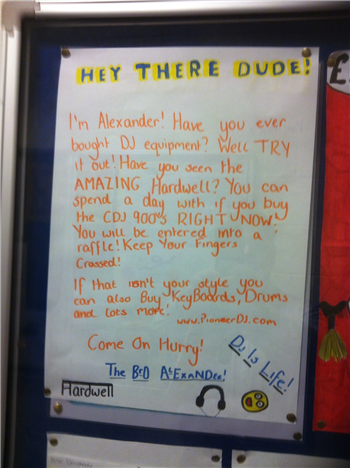 HEY THERE DUDE!
I'm Alexander! Have you ever
bought DJ equipment? Well TRY
it out! Have you seen the
AMAZING Hardwell? You can
spend a day with if you buy
the CDJ 900's RIGHT NOW!
You will be entered into a
raffle! Keep Your Fingers
Crossed!
If that isn't your style you
can also Buy KeyBoards, Drums
and lots more!
www.PioneerDJ.com
Come On Hurry!
DJ Is Life!
The
Hardwell
£